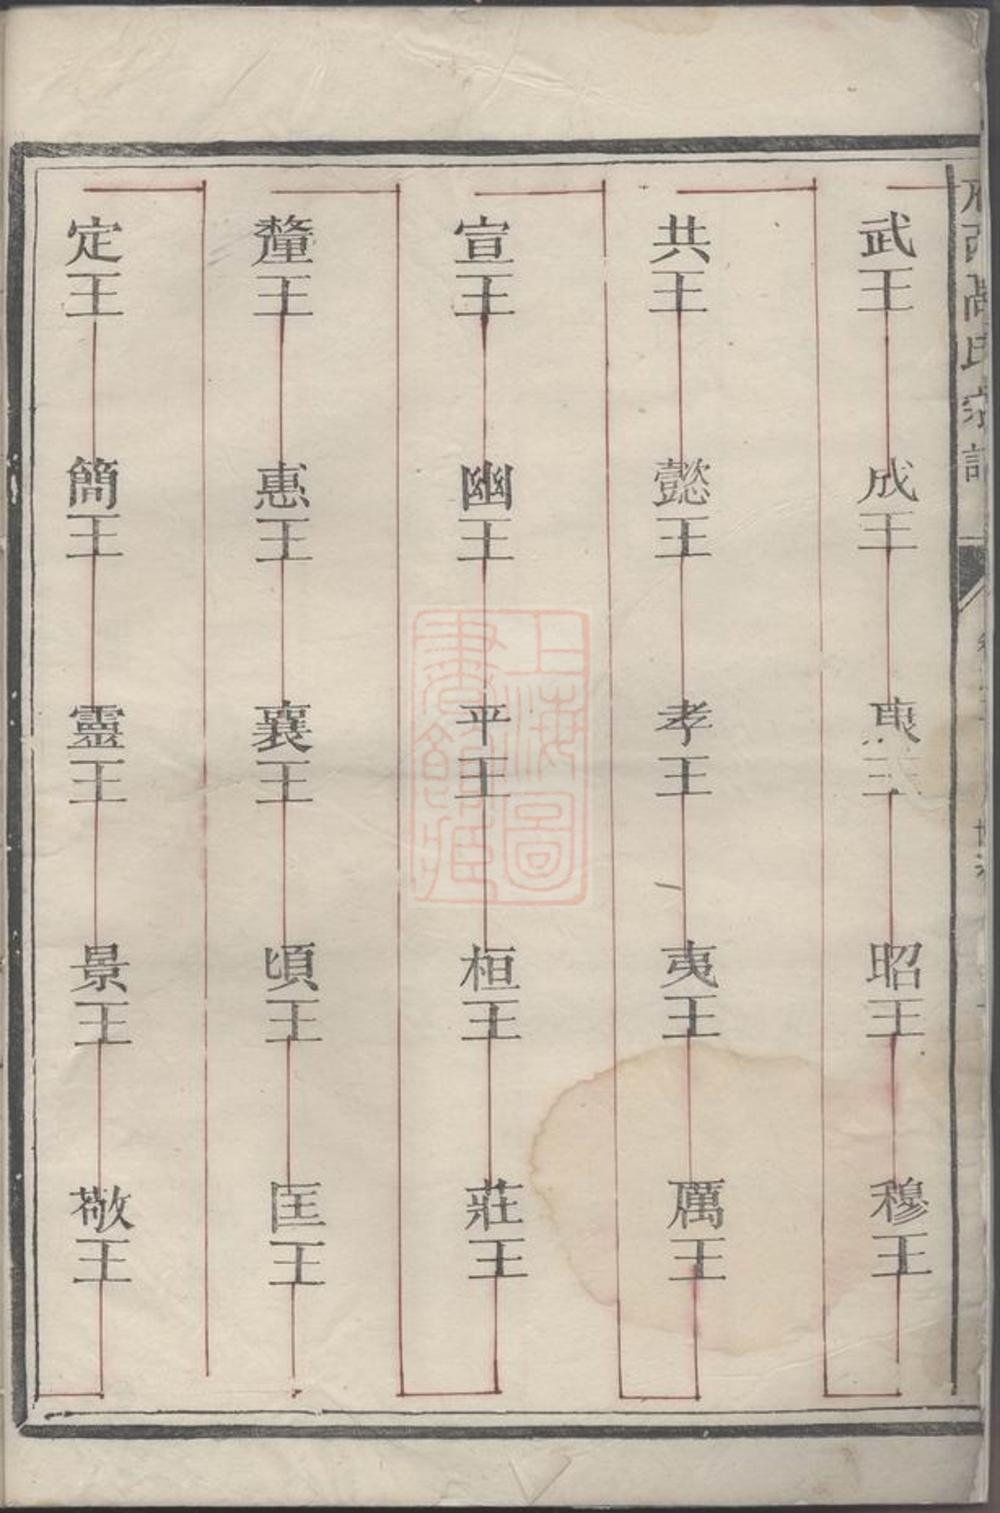 武王 成王 康王 昭王 穆王
共王 懿王 孝王 夷王 厲王
宣王 幽王 平王 桓王 莊王
釐王 惠王 襄王 頃王 匡王
定王 簡王 靈王 景王 敬王
上海圖
書館藏